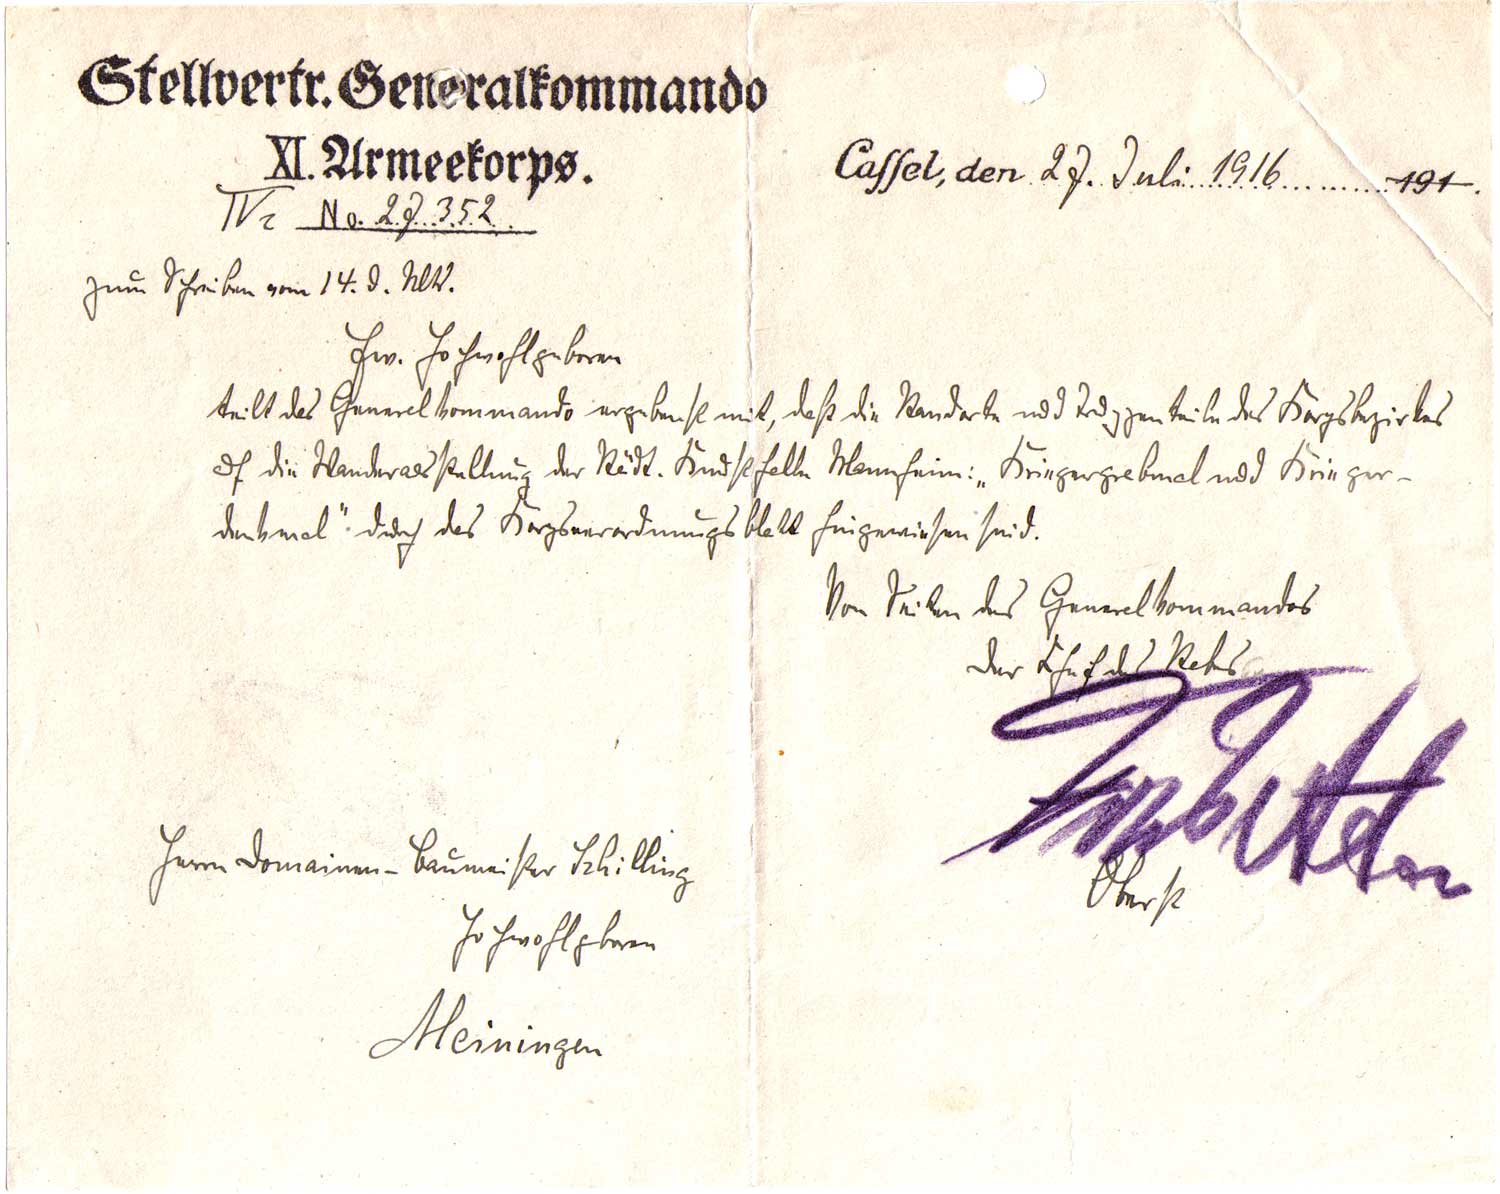 Stellvertr. Generalkommando
XI. Armeekorps.
Cassel, den 27. Juli 1916 191
No. 27352.
zum Schreiben vom 14. d. Mts.
Ew. Hochwohlgeboren
teilt das Generalkommando ergebenst mit, daß die Standorte und Truppenteile des Korpsbezirkes
auf die Wanderausstellung der städt. Kunsthalle Mannheim: „Kriegergrabmal und Krieger-
denkmal" durch das Korpsverordnungsblatt hingewiesen sind.
Von Seiten des Generalkommandos
der Chef des Stabes
Oberst
Herrn Domainen-Baumeister Schilling
Hochwohlgboren
Meiningen